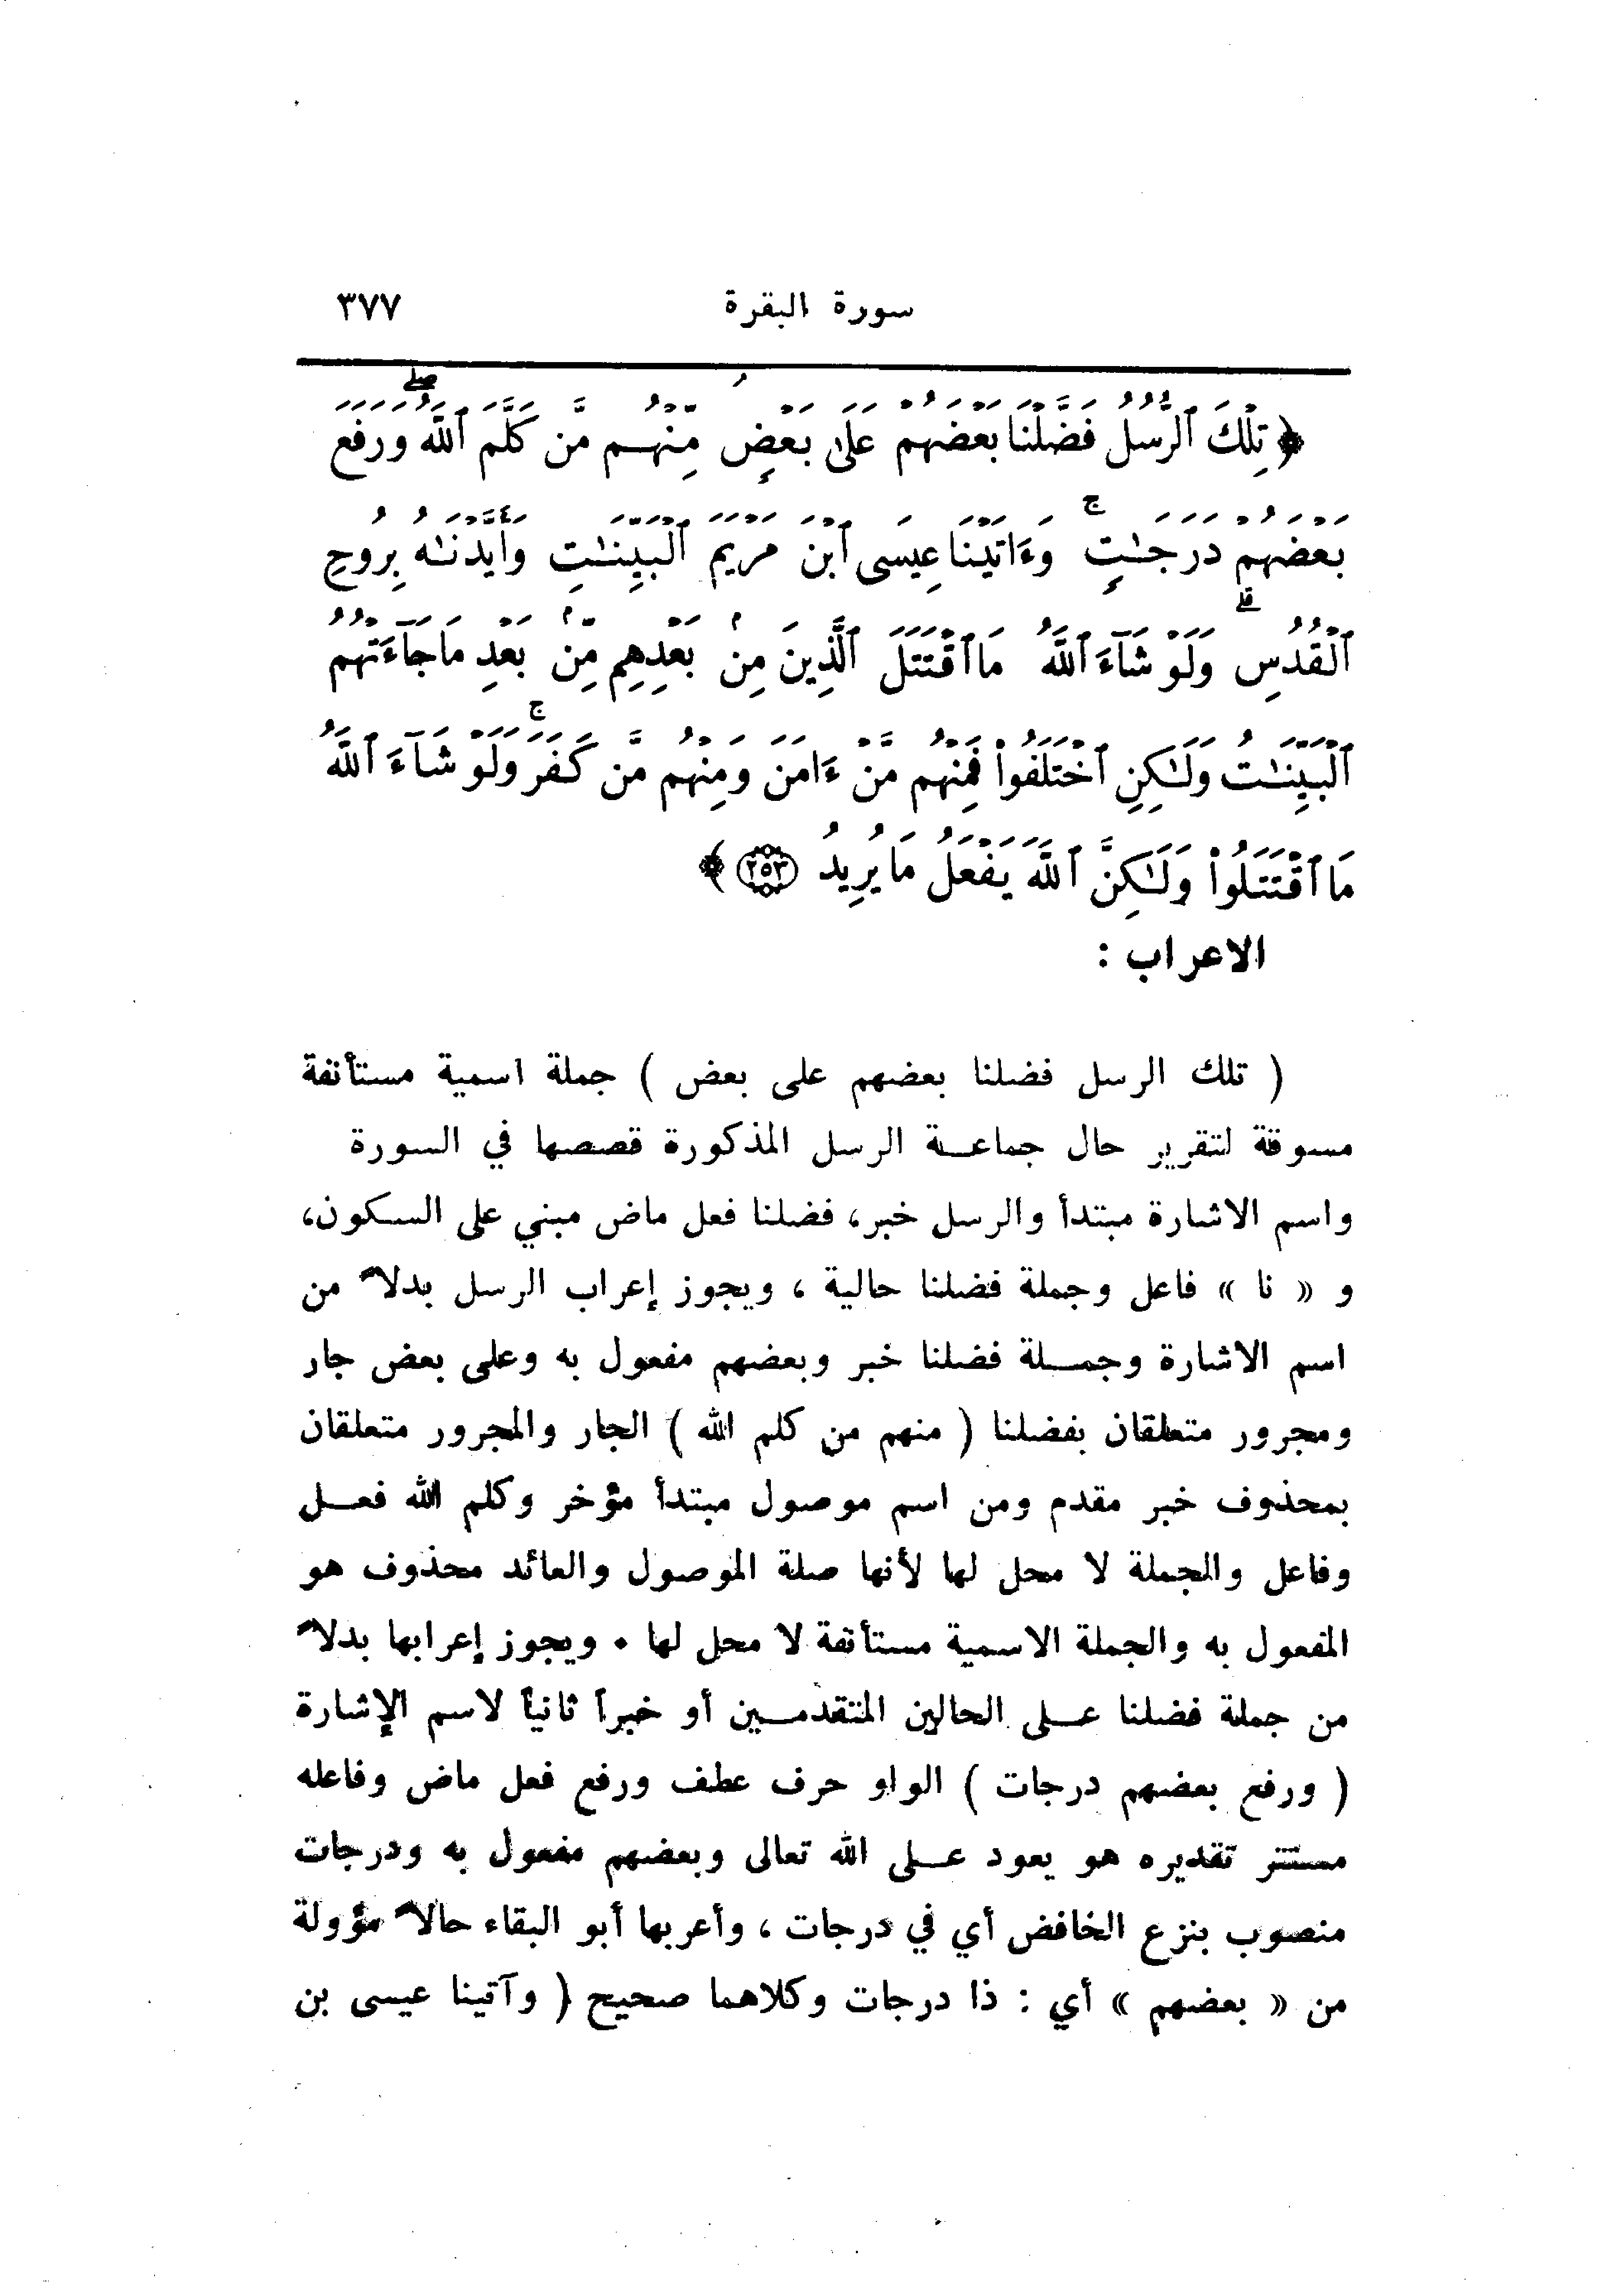 سورة البقرة ٣٧٧
﴿ تِلْكَ ٱلرُّسُلُ فَضَّلْنَا بَعْضَهُمْ عَلَىٰ بَعْضٍ مِّنْهُم مَّن كَلَّمَ ٱللَّهُ ۖ وَرَفَعَ
بَعْضَهُمْ دَرَجَـٰتٍ ۚ وَءَاتَيْنَا عِيسَى ٱبْنَ مَرْيَمَ ٱلْبَيِّنَـٰتِ وَأَيَّدْنَـٰهُ بِرُوحِ
ٱلْقُدُسِ ۗ وَلَوْ شَآءَ ٱللَّهُ مَا ٱقْتَتَلَ ٱلَّذِينَ مِنۢ بَعْدِهِم مِّنۢ بَعْدِ مَا جَآءَتْهُمُ
ٱلْبَيِّنَـٰتُ وَلَـٰكِنِ ٱخْتَلَفُوا۟ فَمِنْهُم مَّنْ ءَامَنَ وَمِنْهُم مَّن كَفَرَ ۚ وَلَوْ شَآءَ ٱللَّهُ
مَا ٱقْتَتَلُوا۟ وَلَـٰكِنَّ ٱللَّهَ يَفْعَلُ مَا يُرِيدُ ٢٥٣ ﴾
الاعراب :
( تلك الرسل فضلنا بعضهم على بعض ) جملة اسمية مستأنفة
مسوقة لتقرير حال جماعة الرسل المذكورة قصصها في السورة
واسم الاشارة مبتدأ والرسل خبر، فضلنا فعل ماض مبني على السكون،
و « نا » فاعل وجملة فضلنا حالية ، ويجوز إعراب الرسل بدلاً من
اسم الاشارة وجملة فضلنا خبر وبعضهم مفعول به وعلى بعض جار
ومجرور متعلقان بفضلنا ( منهم من كلم الله ) الجار والمجرور متعلقان
بمحذوف خبر مقدم ومن اسم موصول مبتدأ مؤخر وكلم الله فعل
وفاعل والجملة لا محل لها لأنها صلة الموصول والعائد محذوف هو
المفعول به والجملة الاسمية مستأنفة لا محل لها . ويجوز إعرابها بدلاً
من جملة فضلنا على الحالين المتقدمين أو خبراً ثانياً لاسم الإشارة
( ورفع بعضهم درجات ) الواو حرف عطف ورفع فعل ماض وفاعله
مستتر تقديره هو يعود على الله تعالى وبعضهم مفعول به ودرجات
منصوب بنزع الخافض أي في درجات ، وأعربها أبو البقاء حالاً مؤولة
من « بعضهم » أي : ذا درجات وكلاهما صحيح ( وآتينا عيسى بن